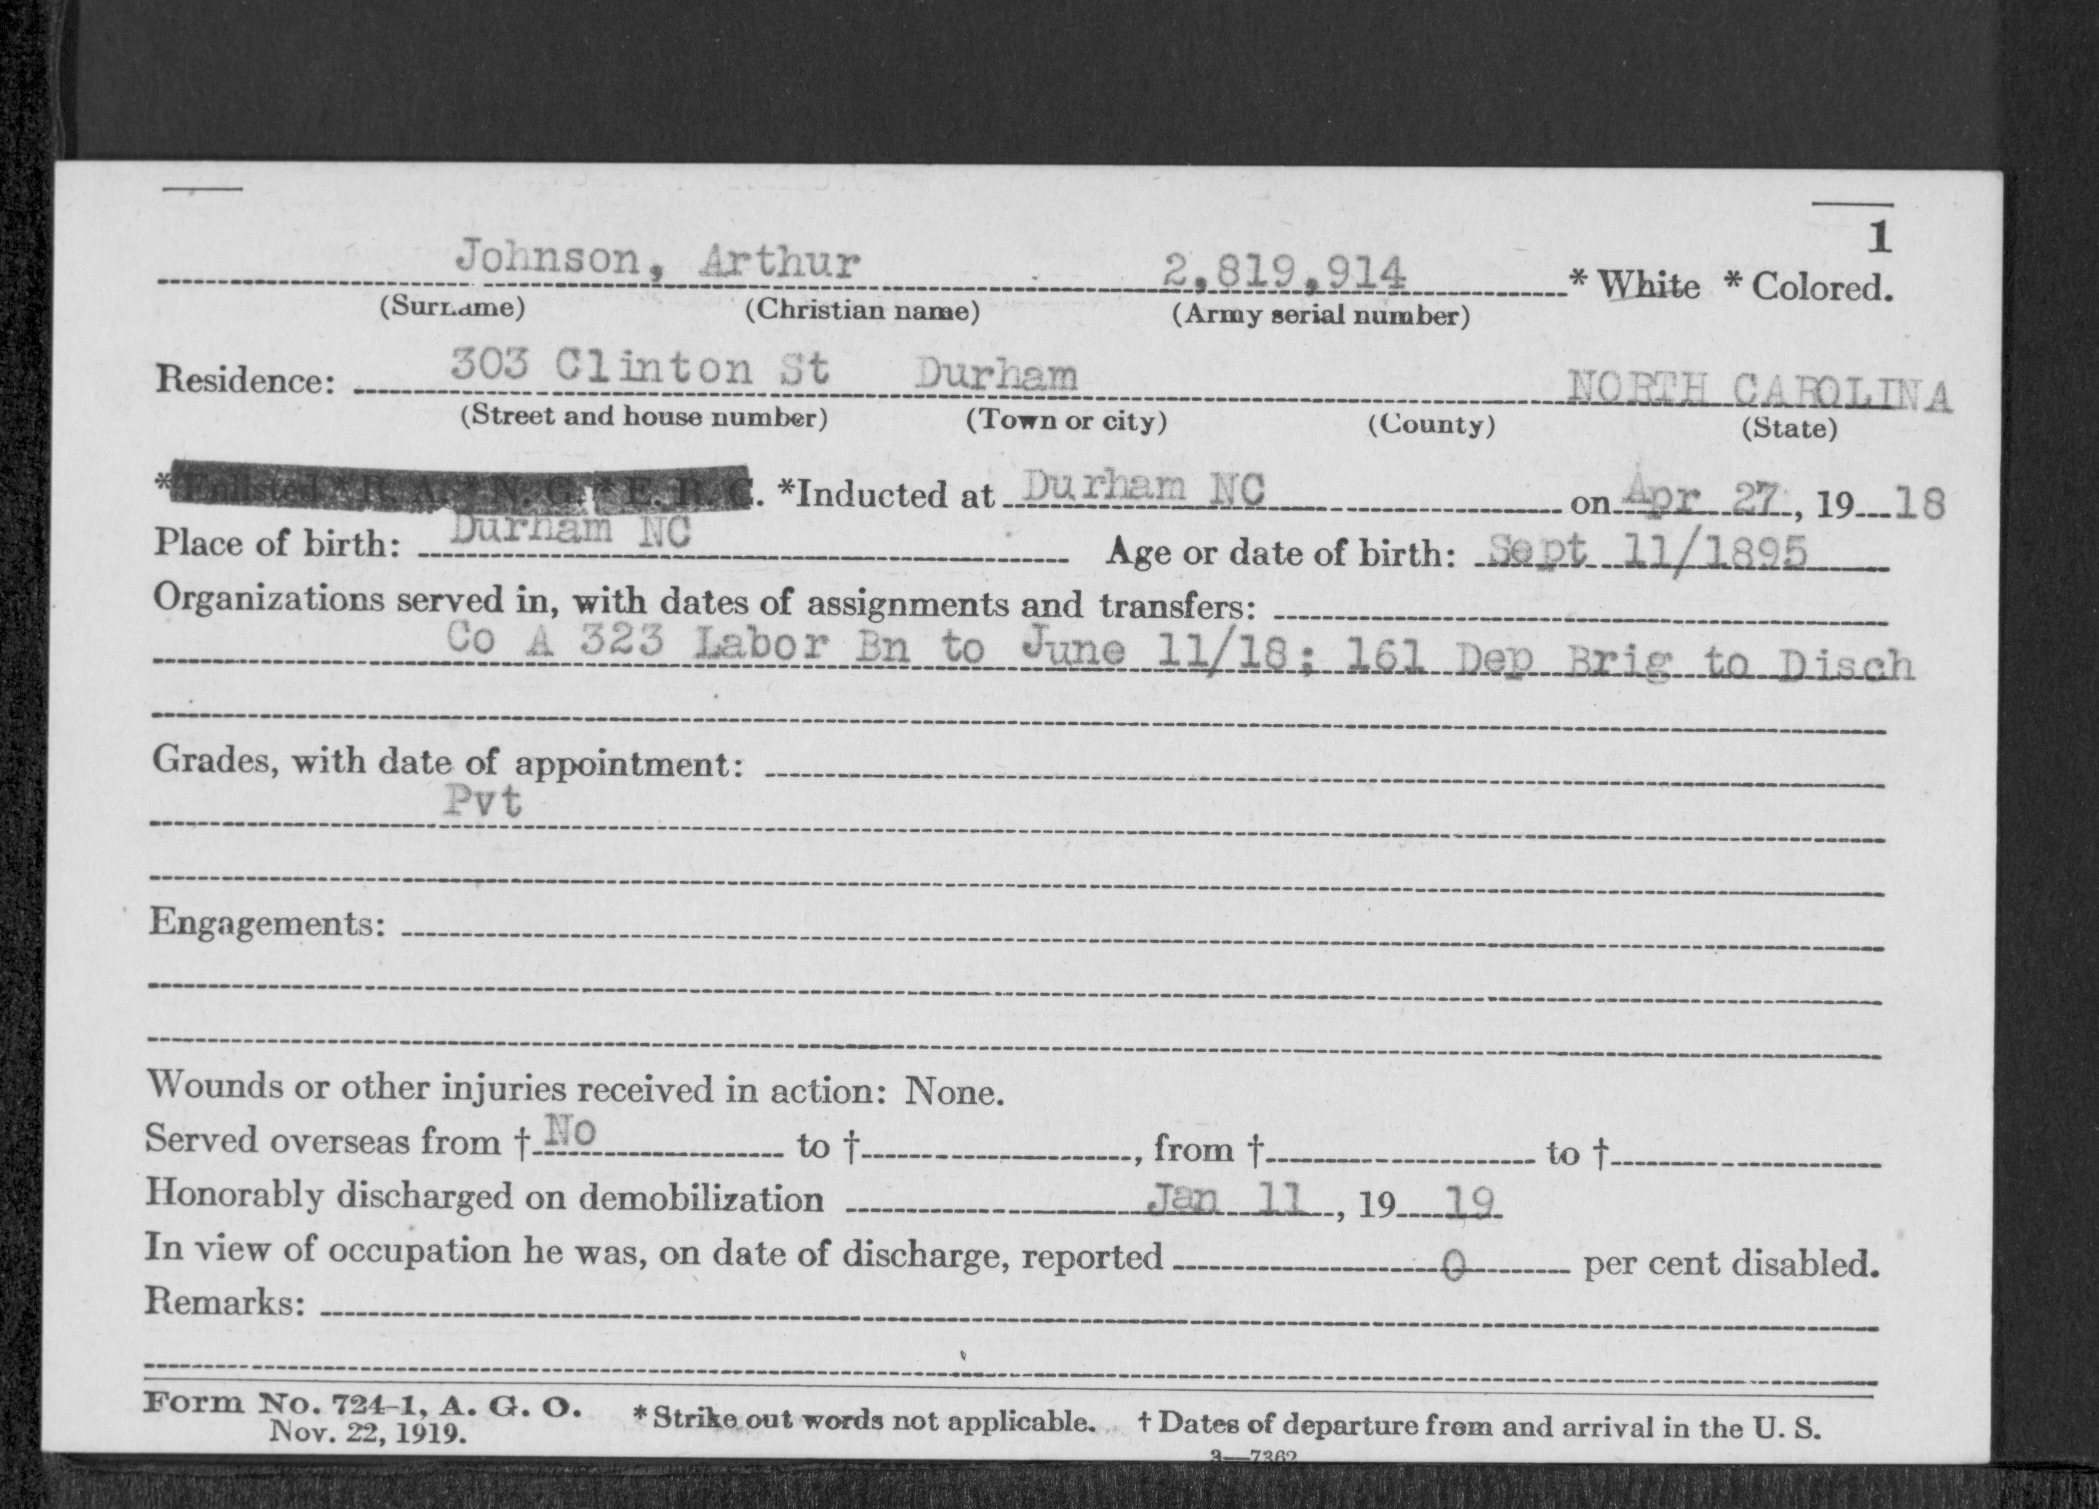 1
Johnson, Arthur 2,819,914 * White * Colored.
(Surname) (Christian name) (Army serial number)
Residence: 303 Clinton St Durham NORTH CAROLINA
(Street and house number) (Town or city) (County) (State)
*Enlisted * R. A. * N. G. * E. R. C. *Inducted at Durham NC on Apr 27, 19 18
Place of birth: Durham NC Age or date of birth: Sept 11/1895
Organizations served in, with dates of assignments and transfers:
Co A 323 Labor Bn to June 11/18; 161 Dep Brig to Disch
Grades, with date of appointment:
Pvt
Engagements:
Wounds or other injuries received in action: None.
Served overseas from † No to †, from † to †
Honorably discharged on demobilization Jan 11, 19 19
In view of occupation he was, on date of discharge, reported 0 per cent disabled.
Remarks:
Form No. 724-1, A. G. O. * Strike out words not applicable. † Dates of departure from and arrival in the U. S.
Nov. 22, 1919.
3—7362